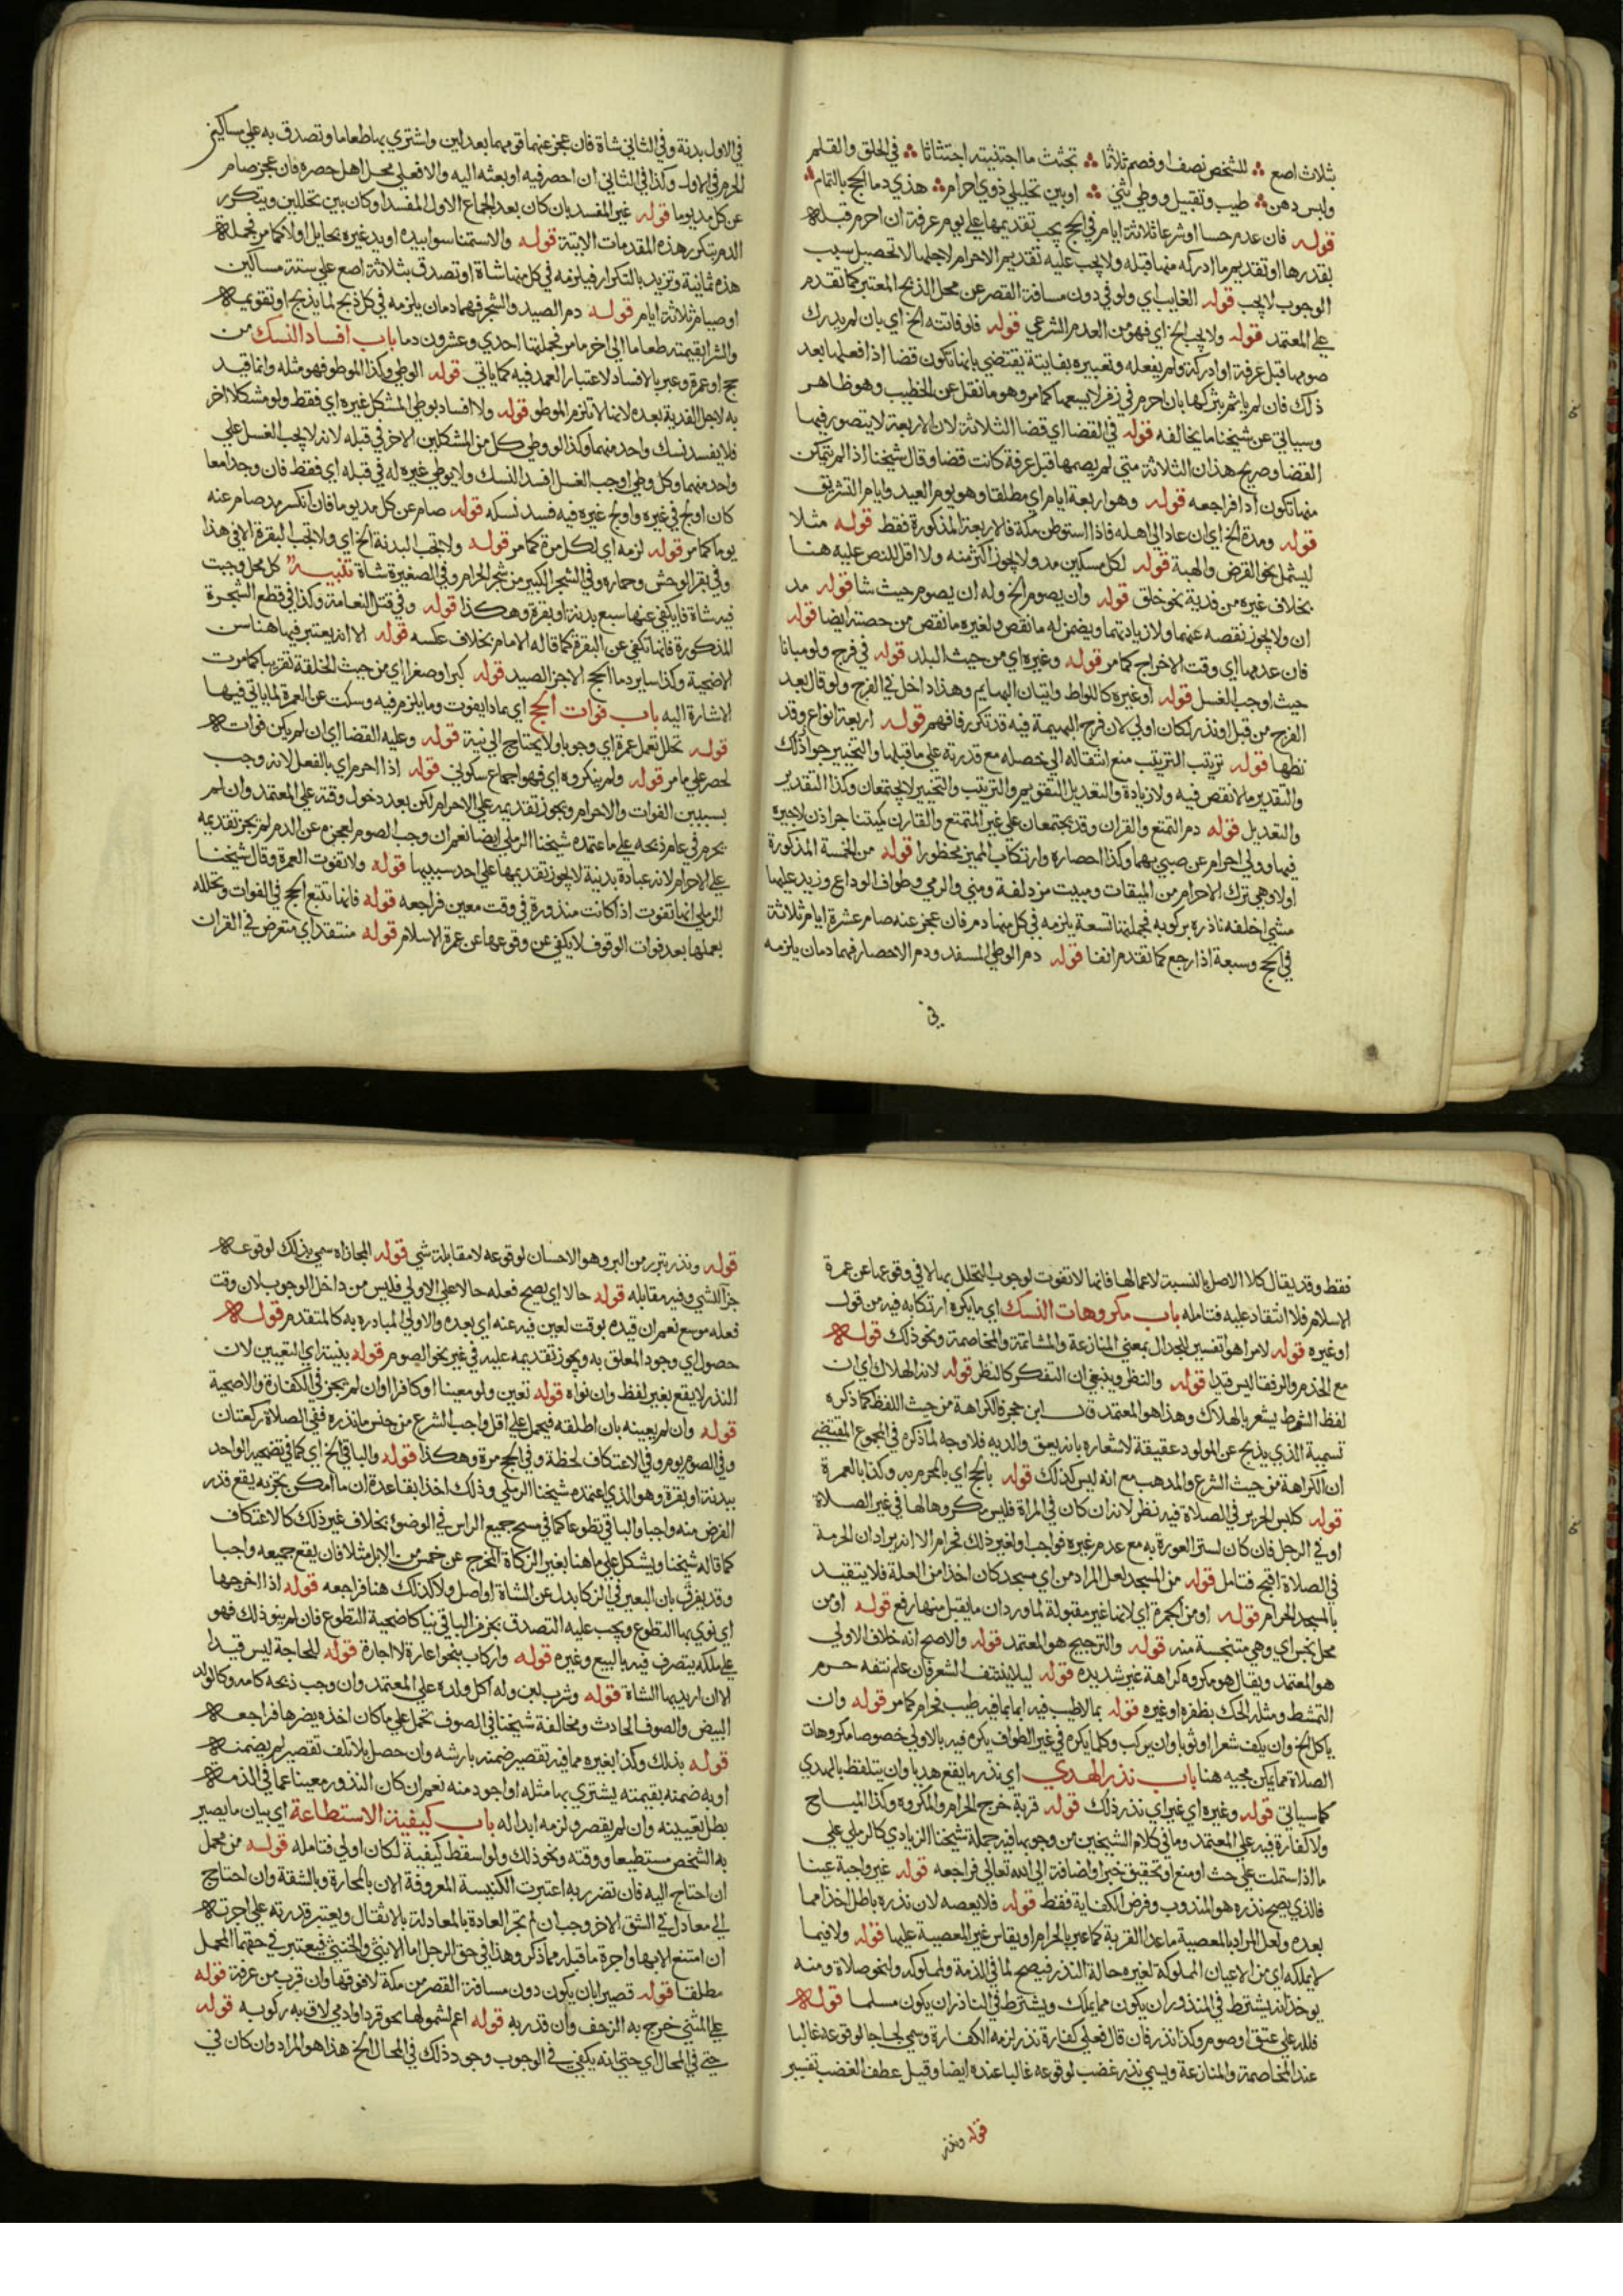 بثلاث اصع ∴ للشخص نصف اوفصم ثلاثا ∴ تجتث ما اجتنبته اجتثاثا ∴ في الحلق والقلم
ولبس دهن ∴ طيب وتقبيل ووطي ثني ∴ اوبين تحليلي ذوي احرام ∴ هذي دما الحج بالتمام ∴
قوله فان عدم حسا اوشرعا ثلاثة ايام في الحج يجب تقديمها علي يوم عرفة ان احرم قبله
بقدرها او تقديم ما ادركه منها قبله ولا يجب عليه تقديم الاحرام لاجلها لا تحصيل سبب
الوجوب لا يجب قوله الغايب اي ولو في دون مسافة القصر عن محل الذبح المعتبر كما تقدم
علي المعتمد قوله ولا يجب الخ اي فهو من العدم الشرعي قوله فلو فاتته الخ اي بان لم يدرك
صومها قبل عرفة او ادركه ولم يفعله وتعبيره بفايتة يقتضي بانها تكون قضا اذا فعلها بعد
ذلك فان لم ياثم بتركها بان احرم في زمن لا يسعها كما مر وهو ما نقل عن الخطيب وهو ظاهر
وسياتي عن شيخنا ما يخالفه قوله في القضا اي قضا الثلاثة لان الاربعة لا يتصور فيها
القضا وصريح هذا ان الثلاثة متي لم يصمها قبل عرفة كانت قضا وقال شيخنا اذا لم يتمكن
منها تكون ادا فراجعه قوله وهو اربعة ايام اي مطلقا وهو يوم العيد وايام التشريق
قوله ومدة الخ اي ان عاد الي اهله فاذا استوطن مكة فالاربعة المذكورة فقط قوله مثلا
ليشمل نحو القرض والهبة قوله لكل مسكين مد ولا يجوز اكثر منه ولا اقل للنص عليه هنا
بخلاف غيره من فدية نحو حلق قوله وان يصوم الخ وله ان يصوم حيث شا قوله مد
ان ولا يجوز نقصه عنهما ولا زيادتهما ويضمن له ما نقص ولغيره ما نقص من حصته ايضا قوله
فان عدمها اي وقت الاخراج كما مر قوله وغيره اي من حيث البلد قوله في فرج ولو مبانا
حيث اوجب الغسل قوله او غيره كاللواط واتيان البهايم وهذا داخل في الفرج ولو قال بعد
الفرج من قبل او دبر لكان اولي لان فرج البهيمة فيه قد تكرر فافهم قوله اربعة انواع وقد
نظمها قوله ترتيب الترتيب منع انتقاله الي خصله مع قدرته علي ما قبلها والتخيير جواز ذلك
والتقدير ما لا نقص فيه ولا زيادة والتعديل التقويم والترتيب والتخيير لا يجتمعان وكذا التقدير
والتعديل قوله دم التمتع والقران وقد يجتمعان علي غير المتمتع والقارن
فيها وولي احرام عن صبي بهما وكذا احصاره وارتكاب المميز محظورا قوله من الخمسة المذكورة
اولا وهي ترك الاحرام من الميقات ومبيت مزدلفة ومني والرمي وطواف الوداع وزيد عليها
مشي اخلفه ناذره بركوبه فجملتها تسعة يلزمه في كل منها دم فان عجز عنه صام عشرة ايام ثلاثة
في الحج وسبعة اذا رجع كما تقدم انفا قوله دم الوطي المفسد ودم الاحصار فهما دمان يلزمه
في
في الاول بدنة وفي الثاني شاة فان عجز عنهما قومهما بعدلين واشتري بها طعاما وتصدق به علي مساكين
الحرم في الاول وكذا في الثاني ان احصر فيه او بعثه اليه والا فعلي محل اهل حصره فان عجز صام
عن كل مد يوما قوله غير المفسد بان كان بعد الجماع الاول المفسد او كان بين تحللين ويتكرر
الدم بتكرر هذه المقدمات الاتية قوله والاستمنا سوا بيده او بيد غيره بحايل اولا كما مر فجملة
هذه ثمانية وتزيد بالتكرار فيلزمه في كل منها شاة او تصدق بثلاثة اصع علي ستة مساكين
او صيام ثلاثة ايام قوله دم الصيد والشجر فهما دمان يلزمه في كل ذبح لما يذبح او تقويمه
والشرا بقيمته طعاما الي اخر ما مر فجملتها احدي وعشرون دما باب افساد النسك من
حج او عمرة وعبر بالافساد لاعتبار العمد فيه كما ياتي قوله الوطي وكذا الموطو فهو مثله وانما قيد
به لاجل الفدية بعده لانها لا تلزم الموطو قوله ولا افساد بوطي المشكل غيره اي فقط ولو مشكلا اخر
فلا يفسد نسك واحد منهما وكذا لو وطي كل من المشكلين الاخر في قبله لانه لا يجب الغسل علي
واحد منهما وكل وطي اوجب الغسل افسد النسك ولا بوطي غيره له في قبله اي فقط فان وجدا معا
كان اولج في غيره واولج غيره فيه فسد نسكه قوله صام عن كل مد يوما فان انكسر مد صام عنه
يوما كما مر قوله لزمه اي لكل مرة كما مر قوله ولا تجب البدنة الخ اي ولا تجب البقرة الا في هذا
وفي بقر الوحش وحماره وفي الشجر الكبير من شجر الحرام وفي الصغيرة شاة تنبيه كل محل وجبت
فيه شاة فايكفي عنها سبع بدنة او بقرة وهكذا قوله وفي قتل النعامة وكذا في قطع الشجرة
المذكورة فانها تكفي عن البقرة كما قاله الامام بخلاف عكسه قوله الا انه يعتبر فيها هنا سن
الاضحية وكذا ساير دما الحج الا جزا الصيد قوله كبرا وصغرا اي من حيث الخلقة تقريبا كما مرت
الاشارة اليه باب فوات الحج اي بماذا يفوت وما يلزم فيه وسكت عن العمرة لما ياتي فيها
قوله تحلل بعمل عمرة اي وجوبا ولا يحتاج الي نية قوله وعليه القضا اي ان لم يكن فوات
لحصر علي ما مر قوله ولم ينكروه اي فهو اجماع سكوتي قوله اذا احرم اي بالفعل لانه وجب
بسببين الفوات والاحرام ويجوز تقديمه علي الاحرام لكن بعد دخول وقته علي المعتمد وان لم
يحرم في عام ذبحه علي ما اعتمده شيخنا الرملي ايضا نعم ان وجب الصوم لعجزه عن الدم لم يجز تقديمه
علي الاحرام لانه عبادة بدنية لا يجوز تقديمها علي احد سببيها قوله ولا تفوت العمرة وقال شيخنا
الرملي انها تفوت اذا كانت منذورة في وقت معين فراجعه قوله فانها تتبع الحج في الفوات وتحلله
بعملها بعد فوات الوقوف لا يكفي عن وقوعها عن عمرة الاسلام قوله منتقد اي متعرض في القران
فقط وقد يقال كلا الاصل بالنسبة لاعمالها فانها لا تفوت لوجوب التحلل بها لا في وقوعها عن عمرة
الاسلام فلا انتقاد عليه فتامله باب مكروهات النسك اي ما يكره ارتكابه فيه من قول
او غيره قوله لامرا هو تفسير للجدال بمعني المنازعة والمشاتمة والمخاصمة ونحو ذلك قوله
مع الحذم والرفقا ليس قيدا قوله والنظر وينبغي ان التفكر كالنظر قوله لانه الهلاك اي ان
لفظ الشوط يشعر بالهلاك وهذا هو المعتمد قال ابن حجر فالكراهة من حيث اللفظ كما ذكره
تسمية الذي يذبح عن المولود عقيقة لاشعاره بانه يعق والديه فلا وجه لما ذكره في المجموع المقتضي
ان الكراهة من حيث الشرع والمذهب مع انه ليس كذلك قوله بالحج اي بالمحرم به وكذا بالعمرة
قوله كلبس الحرير في الصلاة فيه نظر لانه ان كان في المراة فليس مكروها لها في غير الصلاة
او في الرجل فان كان لستر العورة به مع عدم غيره فواجب او لغير ذلك فحرام الا انه يراد ان الحرمة
في الصلاة اقبح فتامل قوله من المسجد لعل المراد من اي مسجد كان اخذا من العلة فلا يتقيد
بالمسجد الحرام قوله او من الجمرة اي لانها غير مقبولة لما ورد ان ما يقبل منها رفع قوله او من
محل نجس اي وهي متنجسة منه قوله والترجيح هو المعتمد قوله والاصح انه خلاف الاولي
هو المعتمد ويقال هو مكروه كراهة غير شديده قوله ليلا ينتتف الشعر فان علم نتفه حرم
التمشط ومثله الحك بظفره او غيره قوله بما لا طيب فيه اما بما فيه طيب فحرام كما مر قوله وان
ياكل الخ وان يكف شعرا او ثوبا وان يركب وكلما يكره في غير الطواف يكره فيه بالاولي خصوصا مكروهات
الصلاة مما يمكن مجيه هنا باب نذر الهدي اي نذر ما يقع هديا وان يتلفظ بالهدي
كما سياتي قوله وغيره اي غير اي نذر ذلك قوله قربة خرج الحرام والمكروه وكذا المباح
ولا كفارة فيه علي المعتمد وما في كلام الشيخين من وجوبها فيه حمله شيخنا الزيادي كالرملي علي
ما اذا اشتملت علي حث او منع او تحقيق خبر او اضافة الي الله تعالي فراجعه قوله غير واجبة عينا
فالذي يصح نذره هو المندوب وفرض الكفاية فقط قوله فلا يعصه لان نذره باطل اخذا مما
بعده ولعل المراد بالمعصية ما عدا القربة كما عبر بالحرام او يقاس غير المعصية عليها قوله ولا فيما
لا يملكه اي من الاعيان المملوكة لغيره حالة النذر فيصح لما في الذمة ولمملوكه ولنحو صلاة ومنه
يوخذ انه يشترط في المنذور ان يكون مما يملك ويشترط في الناذر ان يكون مسلما قوله
فلله علي عتق او صوم وكذا نذر فان قال فعلي كفارة نذر لزمه الكفارة وسمي لجاجا لوقوعه غالبا
عند المخاصمة والمنازعة ويسمي نذر غضب لوقوعه غالبا عنده ايضا وقيل عطف الغضب تفسير
قوله ونذر
قوله ونذر تبرر من البر وهو الاحسان لوقوعه لا مقابلة شي قوله المجازاه سمي بذلك لوقوعه
جزا للشي وفيه مقابله قوله حالا اي يصح فعله حالا علي الاولي فليس من داخل الوجوب لان وقت
فعله موسع نعم ان قيده بوقت لعين فيه عنه اي بعده والاولي المبادره به كالمتقدم قوله
حصول اي وجود المعلق به ويجوز تقديمه عليه في غير نحو الصوم قوله بنية اي لتعيين لان
النذر لا يقع بغير لفظ وان نواه قوله تعين ولو معيبا او كافرا وان لم يجز في الكفارة والاضحية
قوله وان لم يعينه بان اطلقه فيحمل علي اقل واجب الشرع من جنس ما نذره ففي الصلاة ركعتان
وفي الصوم يوم وفي الاعتكاف لحظة وفي الحج مرة وهكذا قوله والباقي الخ اي كما في تضحية الواحد
ببدنة او بقرة وهو الذي اعتمده شيخنا الرملي وذلك اخذا بقاعدة ان ما امكن تجزيه يقع قدر
الفرض منه واجبا والباقي تطوعا كما في مسح جميع الراس في الوضوء بخلاف غير ذلك كالاعتكاف
كما قاله شيخنا ويشكل علي ما هنا بغير الزكاة المخرج عن خمس من الابل مثلا فان يقع جميعه واجبا
وقد يفرق بان البعير في الزكا بدل عن الشاة او اصل ولا كذلك هنا فراجعه قوله اذا اخرجها
اي نوي بها التطوع ويجب عليه التصدق بجزء من الباقي نيا كاضحية التطوع فان لم ينو ذلك فهو
علي ملكه يتصرف فيه بالبيع وغيره قوله واركاب بنحو اعارة لا اجارة قوله للحاجة ليس قيدا
الا ان اريد بها الشاة قوله وشرب لبن وله اكل ولده علي المعتمد وان وجب ذبحه كامه وكالولد
البيض والصوف الحادث ومخالفة شيخنا في الصوف تحمل علي ما كان اخذه يضرها فراجعه
قوله بذلك وكذا بغيره مما فيه تقصير ضمنه بارشه وان حصل بلا تلف تقصير لم يضمنه
او به ضمنه بقيمته يشتري بها مثله او اجود منه نعم ان كان النذور معينا عما في الذمة
بطل تعيينه وان لم يقصر ولزمه ابداله باب كيفية الاستطاعة اي بيان ما يصير
به الشخص مستطيعا ووقته ونحو ذلك ولو اسقط كيفية لكان اولي فتامله قوله من محمل
ان احتاج اليه فان تضرر به اعتبرت الكنيسة المعروفة الان بالمحارة وبالشقة وان احتاج
الي معادل في الشق الاخر وجب ان لم تجر العادة بالمعادلة بالاثقال ويعتبر قدرته علي اجرته
ان امتنع الا بها واجرة ما قبله مما ذكر وهذا في حق الرجل اما الانثي والخنثي فيعتبر في حقهما المحمل
مطلقا قوله قصير ابان يكون دون مسافة القصر من مكة لا فوقها وان قرب من عرفة قوله
علي المشي خرج به الزحف وان قدر به قوله اعم لشمولها نحو قرد او ادمي لاق به ركوبه قوله
حتي في المحال اي حتي انه يكفي في الوجوب وجود ذلك في المحال الخ هذا هو المراد وان كان في